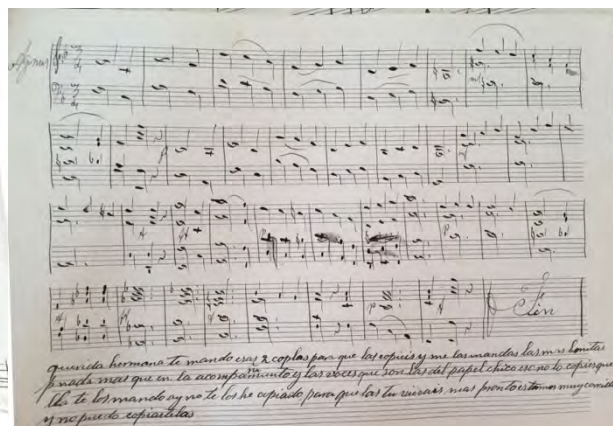 Agnus
Fin
querida hermana te mando esas 2 coplas para que las copieis y me las mandas las mas bonitas
nada mas que en la acompañamiento y las voces que son las del papel chico eso no lo copies que
te los mando ay no te los he copiado para que las tu mas pronto estamos muy
y no puedo copiartelas